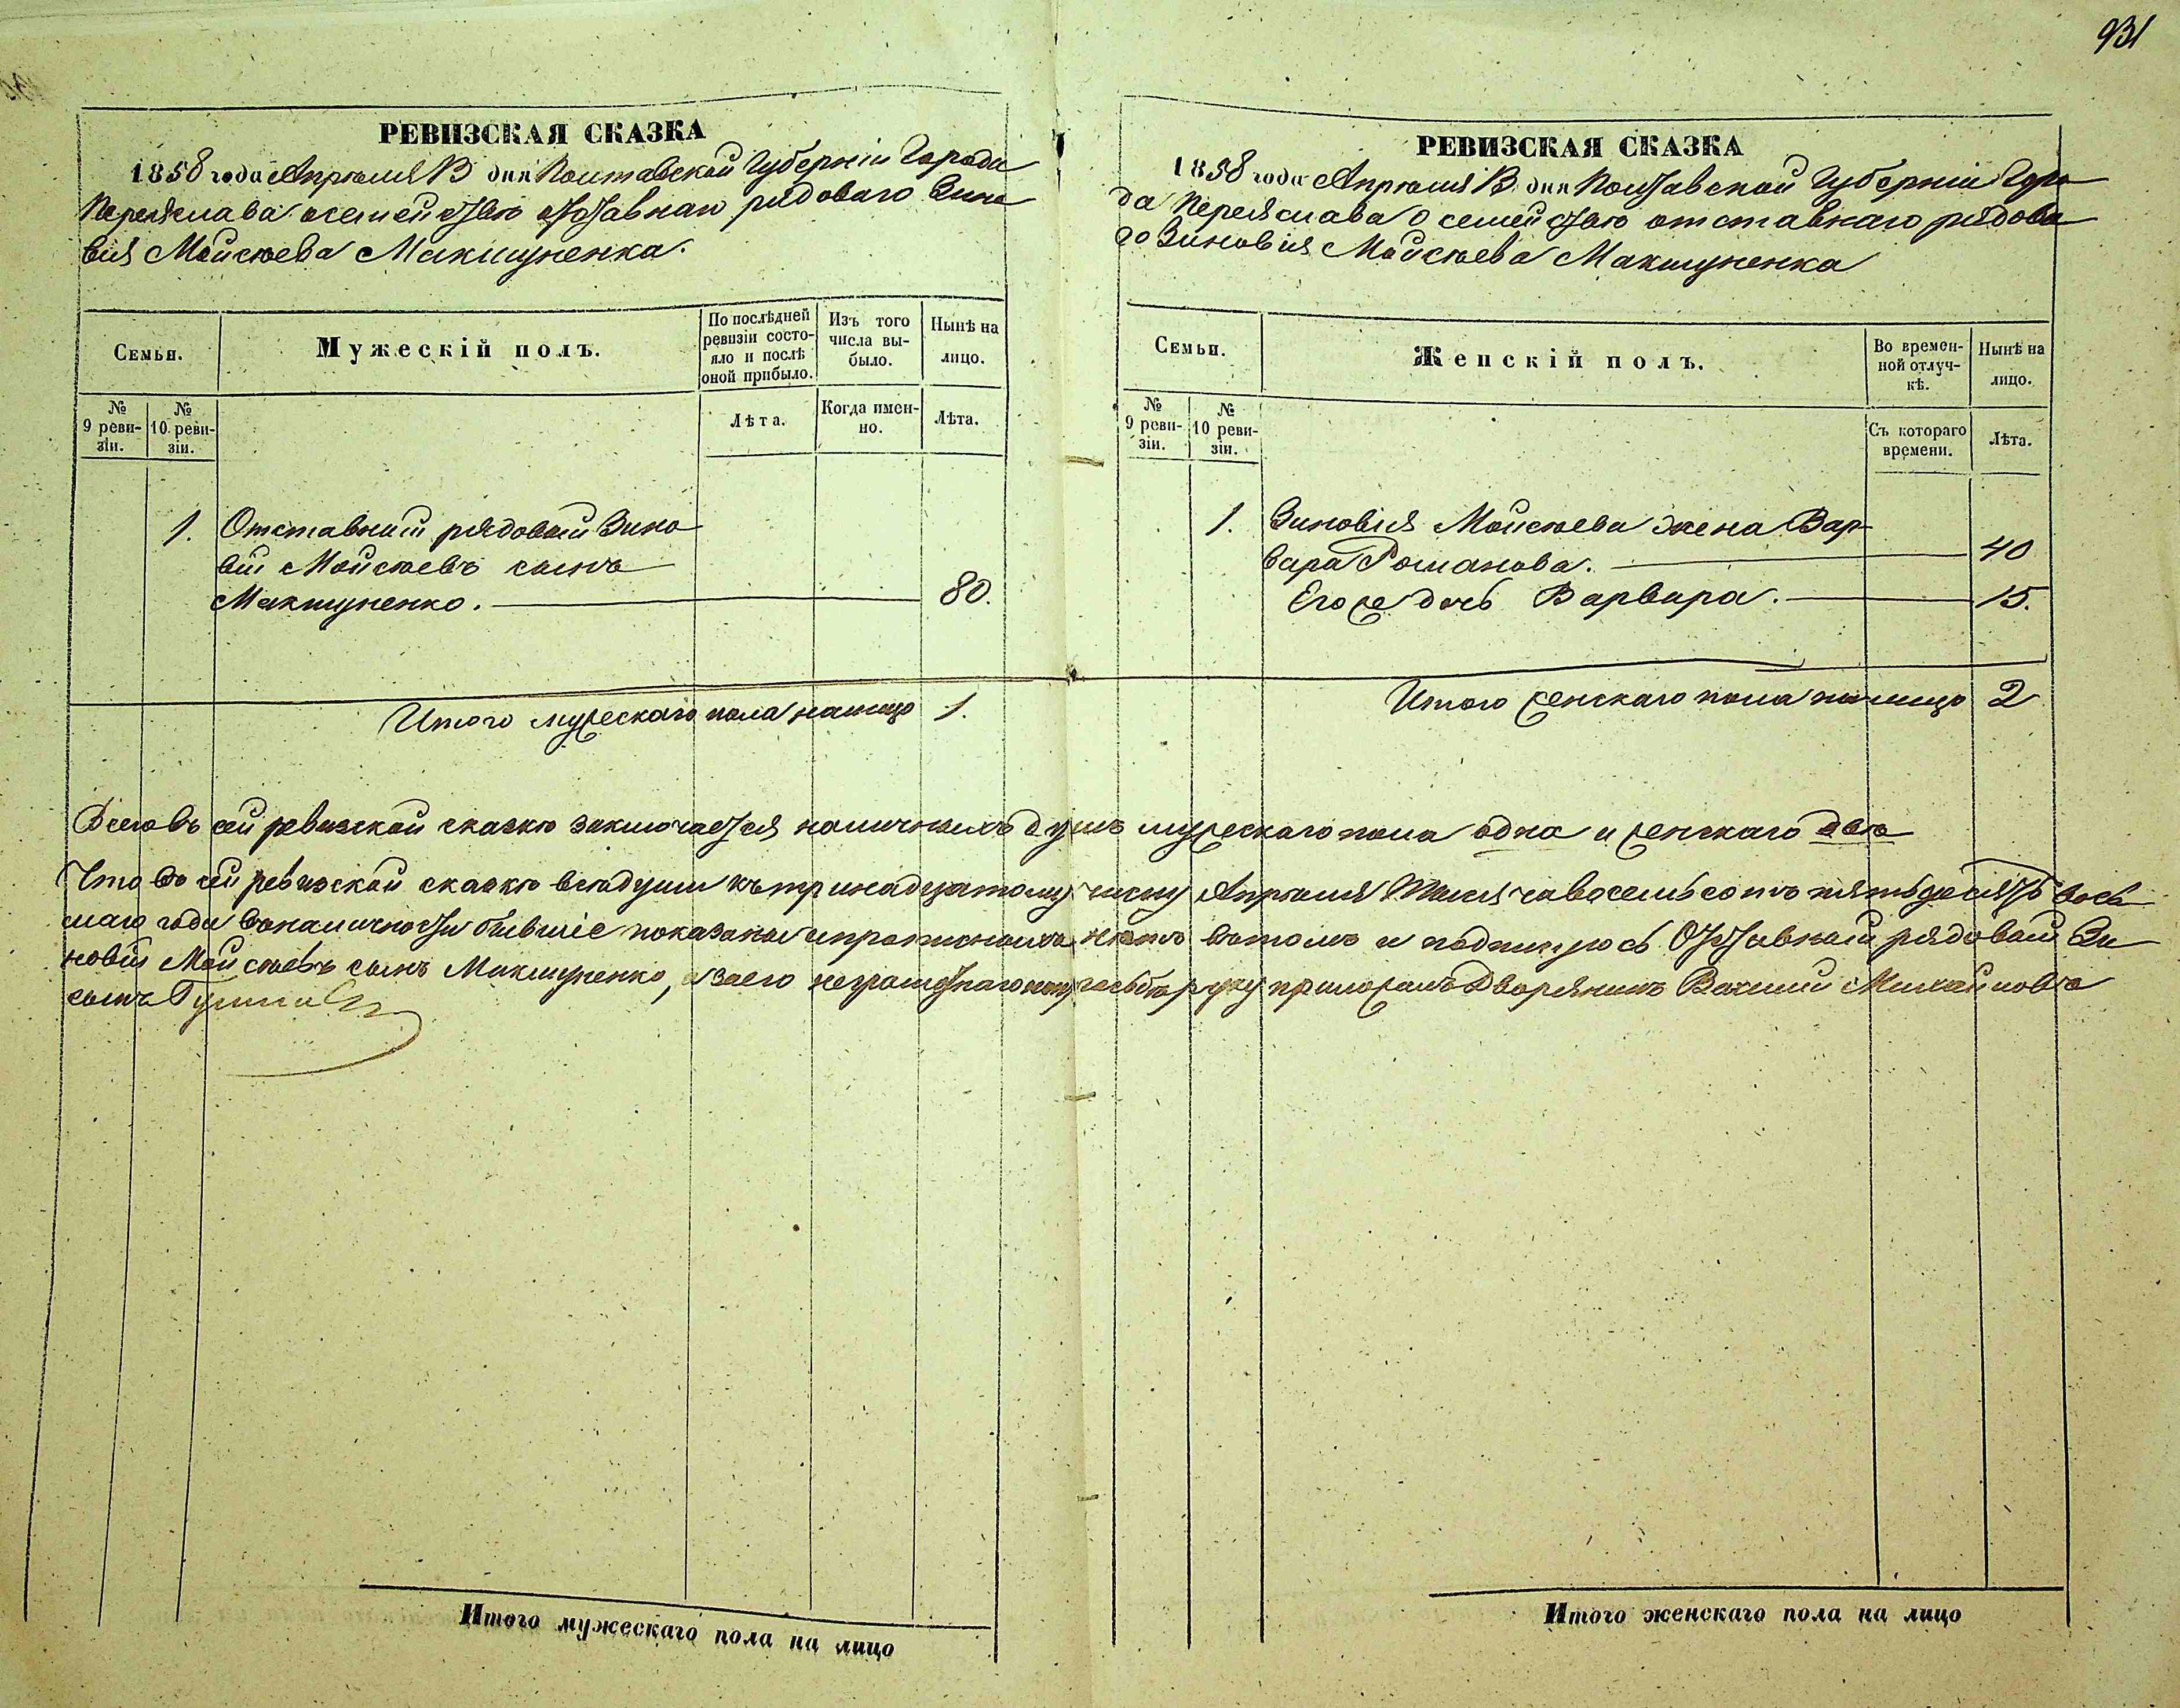 931
РЕВИЗСКАЯ СКАЗКА
1858 года Апрѣля 13 дня Полтавской Губерніи Города
Переяслава о семействѣ отставнаго рядоваго Зино
вія Мойсѣева Макшуненка.
Семьи.
Мужескій полъ.
По послѣдней ревизіи состо-
яло и послѣ оной прибыло.
Изъ того числа вы-
было.
Нынѣ на лицо.
№ 9 реви-
зіи.
№ 10 реви-
зіи.
Лѣта.
Когда имен-
но.
Лѣта.
1. Отставный рядовый Зино
вій Мойсѣевъ сынъ
Макшуненко. 80.
Итого мужескаго пола налицо 1.
РЕВИЗСКАЯ СКАЗКА
1858 года Апрѣля 13 дня Полтавской Губерніи Горо
да Переяслава о семействѣ отставнаго рядова
го Зиновія Мойсѣева Макшуненка
Семьи.
Женскій полъ.
Во времен-
ной отлуч-
кѣ.
Нынѣ на лицо.
№ 9 реви-
зіи.
№ 10 реви-
зіи.
Съ котораго времени.
Лѣта.
1. Зиновія Мойсѣева жена Вар-
вара Романова. 40
Его же дочь Варвара. 15.
Итого женскаго пола налицо 2
Всего въ сей ревизской сказкѣ заключается наличныхъ душъ мужескаго пола одна и женскаго двѣ
Что въ сей ревизской сказкѣ всѣ души къ тринадцатому числу Апрѣля тысяча восемьсотъ пятьдесятъ вось
маго года въ наличности бывшіе показаны и прописныхъ нѣтъ въ томъ и подпишусь Отставный рядовый Зи
новій Мойсѣевъ сынъ Макшуненко, а за его неграмотнаго по просьбѣ руку приложилъ Дворянинъ Михайловъ
сынъ
Итого мужескаго пола на лицо
Итого женскаго пола на лицо